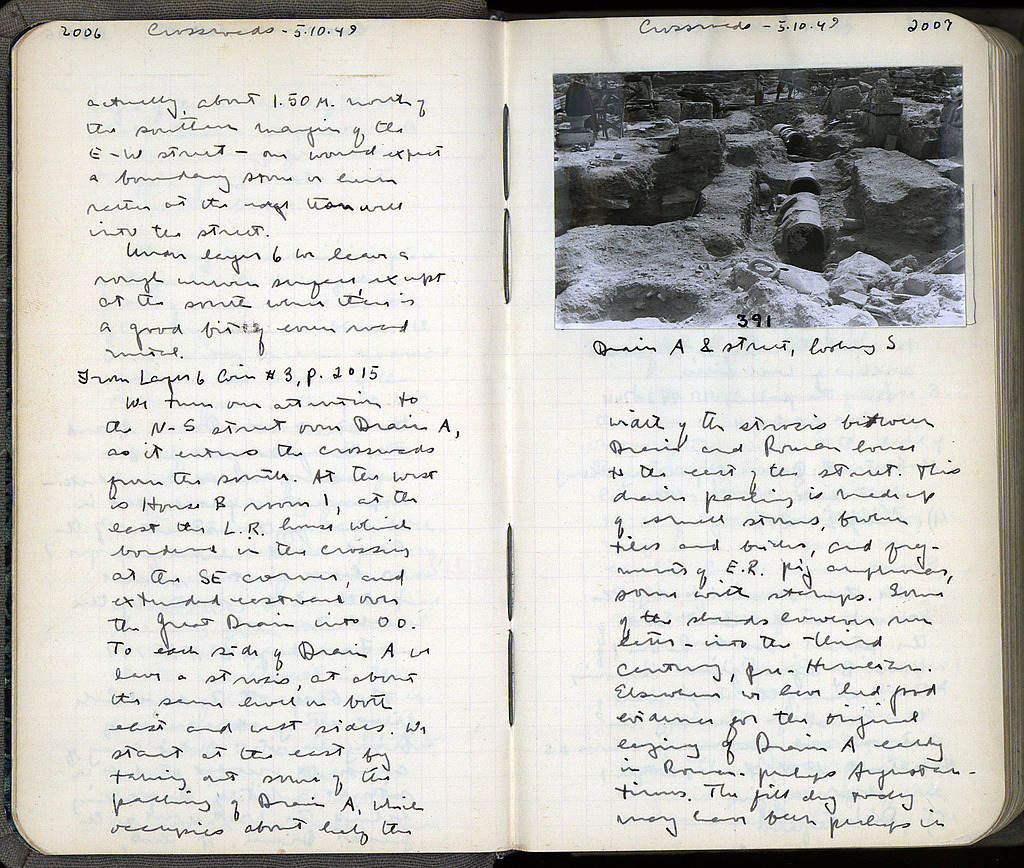 2006 Crossroads - 5.10.49
actually, about 1.50 M. north of
the southern margin of the
E-W street - one would expect
a boundary stone or herm
rather at the edge than well
into the street.
Under layer 6 we leave a
rough uneven surface, except
at the south where there is
a good bit of even road
metal.
From Layer 6 Coin #3, p. 2015
We turn our attention to
the N-S street over Drain A,
as it enters the crossroads
from the south. At the west
is House B room 1, at the
east the L.R. house which
bordered in the crossing
at the SE corner, and
extended eastward over
the Great Drain into OO.
To each side of Drain A we
have a strosis, at about
the same level on both
east and west sides. We
start at the east by
taking out some of the
packing of Drain A, which
occupies about half the
Crossroads - 5.10.49 2007
391
Drain A & street, looking S
width of the strosis between
Drain and Roman house
to the east of the street. This
drain packing is made up
of small stones, broken
tiles and bricks, and frag-
ments of E.R. pig amphoras,
some with stamps. Some
of the sherds however run
later - into the third
century, pre-Herulian.
Elsewhere we have had good
evidence for the original
laying of Drain A early
in Roman - perhaps Augustan -
times. The fill dug today
may have been perhaps in